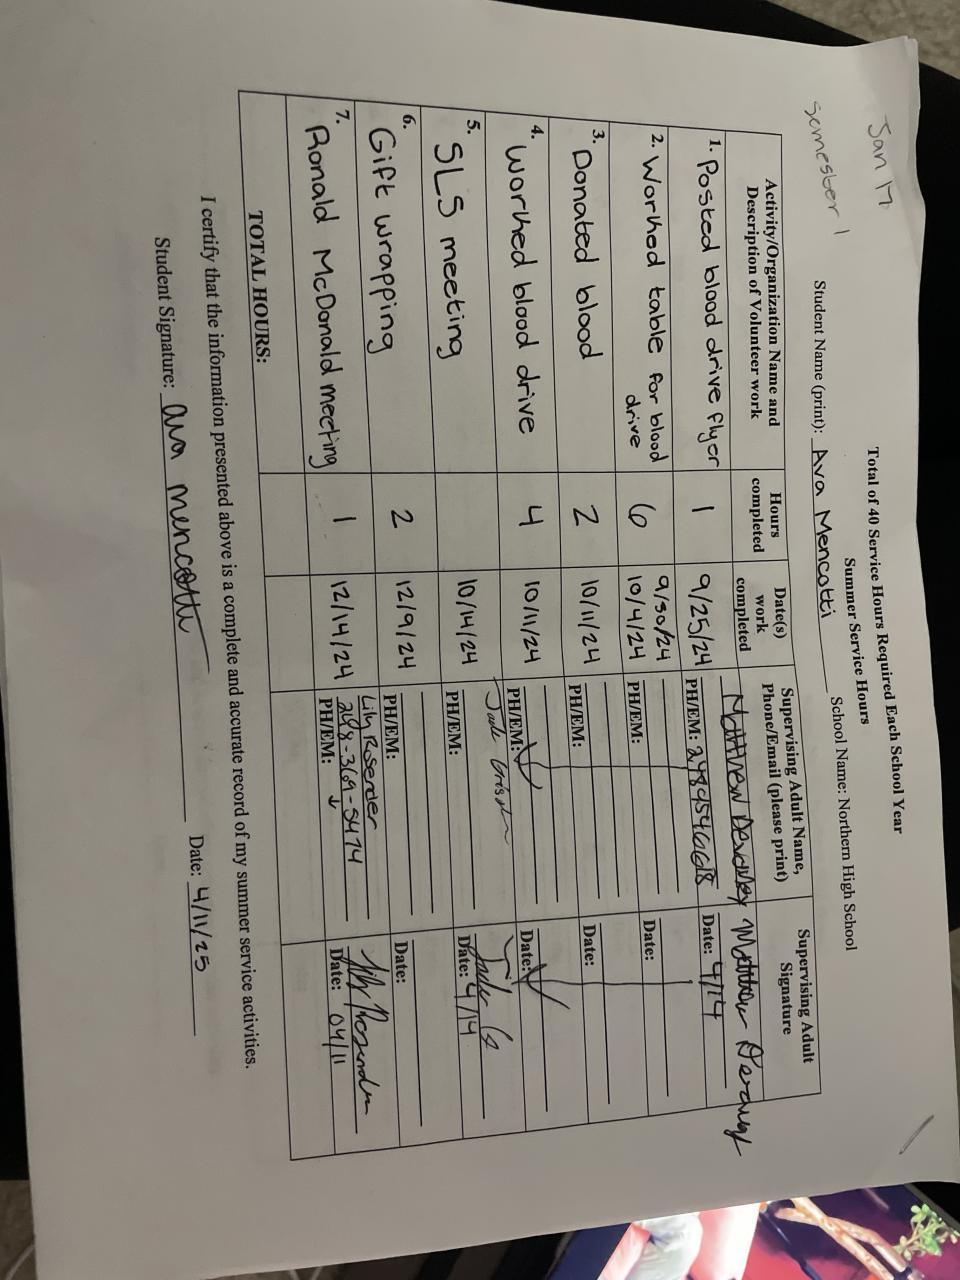 Jan 17
semester 1
Total of 40 Service Hours Required Each School Year
Summer Service Hours
Student Name (print): Ava Mencotti School Name: Northern High School
Activity/Organization Name and Description of Volunteer work
Hours completed
Date(s) work completed
Supervising Adult Name, Phone/Email (please print)
Supervising Adult Signature
1. Posted blood drive flyer
1
9/25/24
Matthew
PH/EM:
Matthew
Date: 4/14
2. Worked table for blood drive
6
9/30/24
10/4/24
PH/EM:
Date:
3. Donated blood
2
10/11/24
PH/EM:
Date:
4. Worked blood drive
4
10/11/24
PH/EM:
Date:
5. SLS meeting
10/14/24
PH/EM:
Date: 4/14
6. Gift wrapping
2
12/9/24
PH/EM:
Date:
7. Ronald McDonald meeting
1
12/14/24
Lily
248-369-5474
PH/EM:
Lily
Date: 04/11
TOTAL HOURS:
I certify that the information presented above is a complete and accurate record of my summer service activities.
Student Signature: ava mencotti Date: 4/11/25